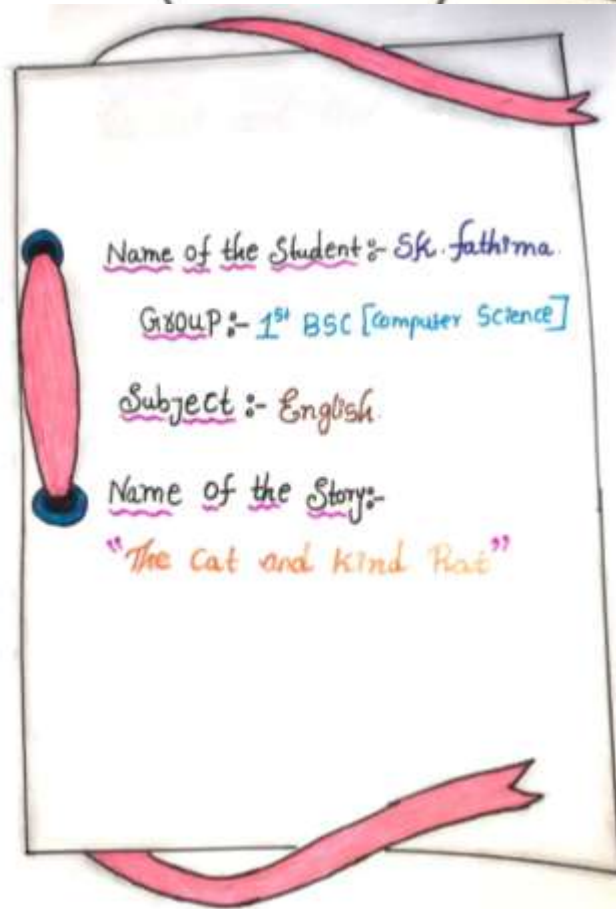 Name of the Student:- SK. fathima.
Group:- 1st BSC [Computer Science]
Subject:- English.
Name of the Story:-
"The Cat and Kind Rat"